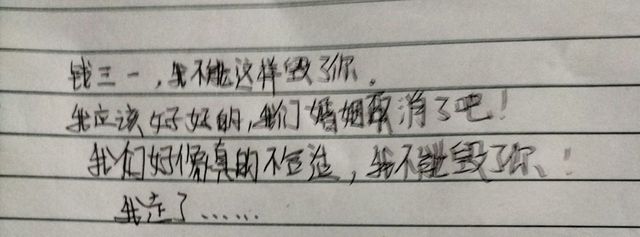 钱三一，我不能这样毁了你。
我应该好好的，我们婚姻取消了吧！
我们好像真的不合适，我不能毁了你、！
我走了……